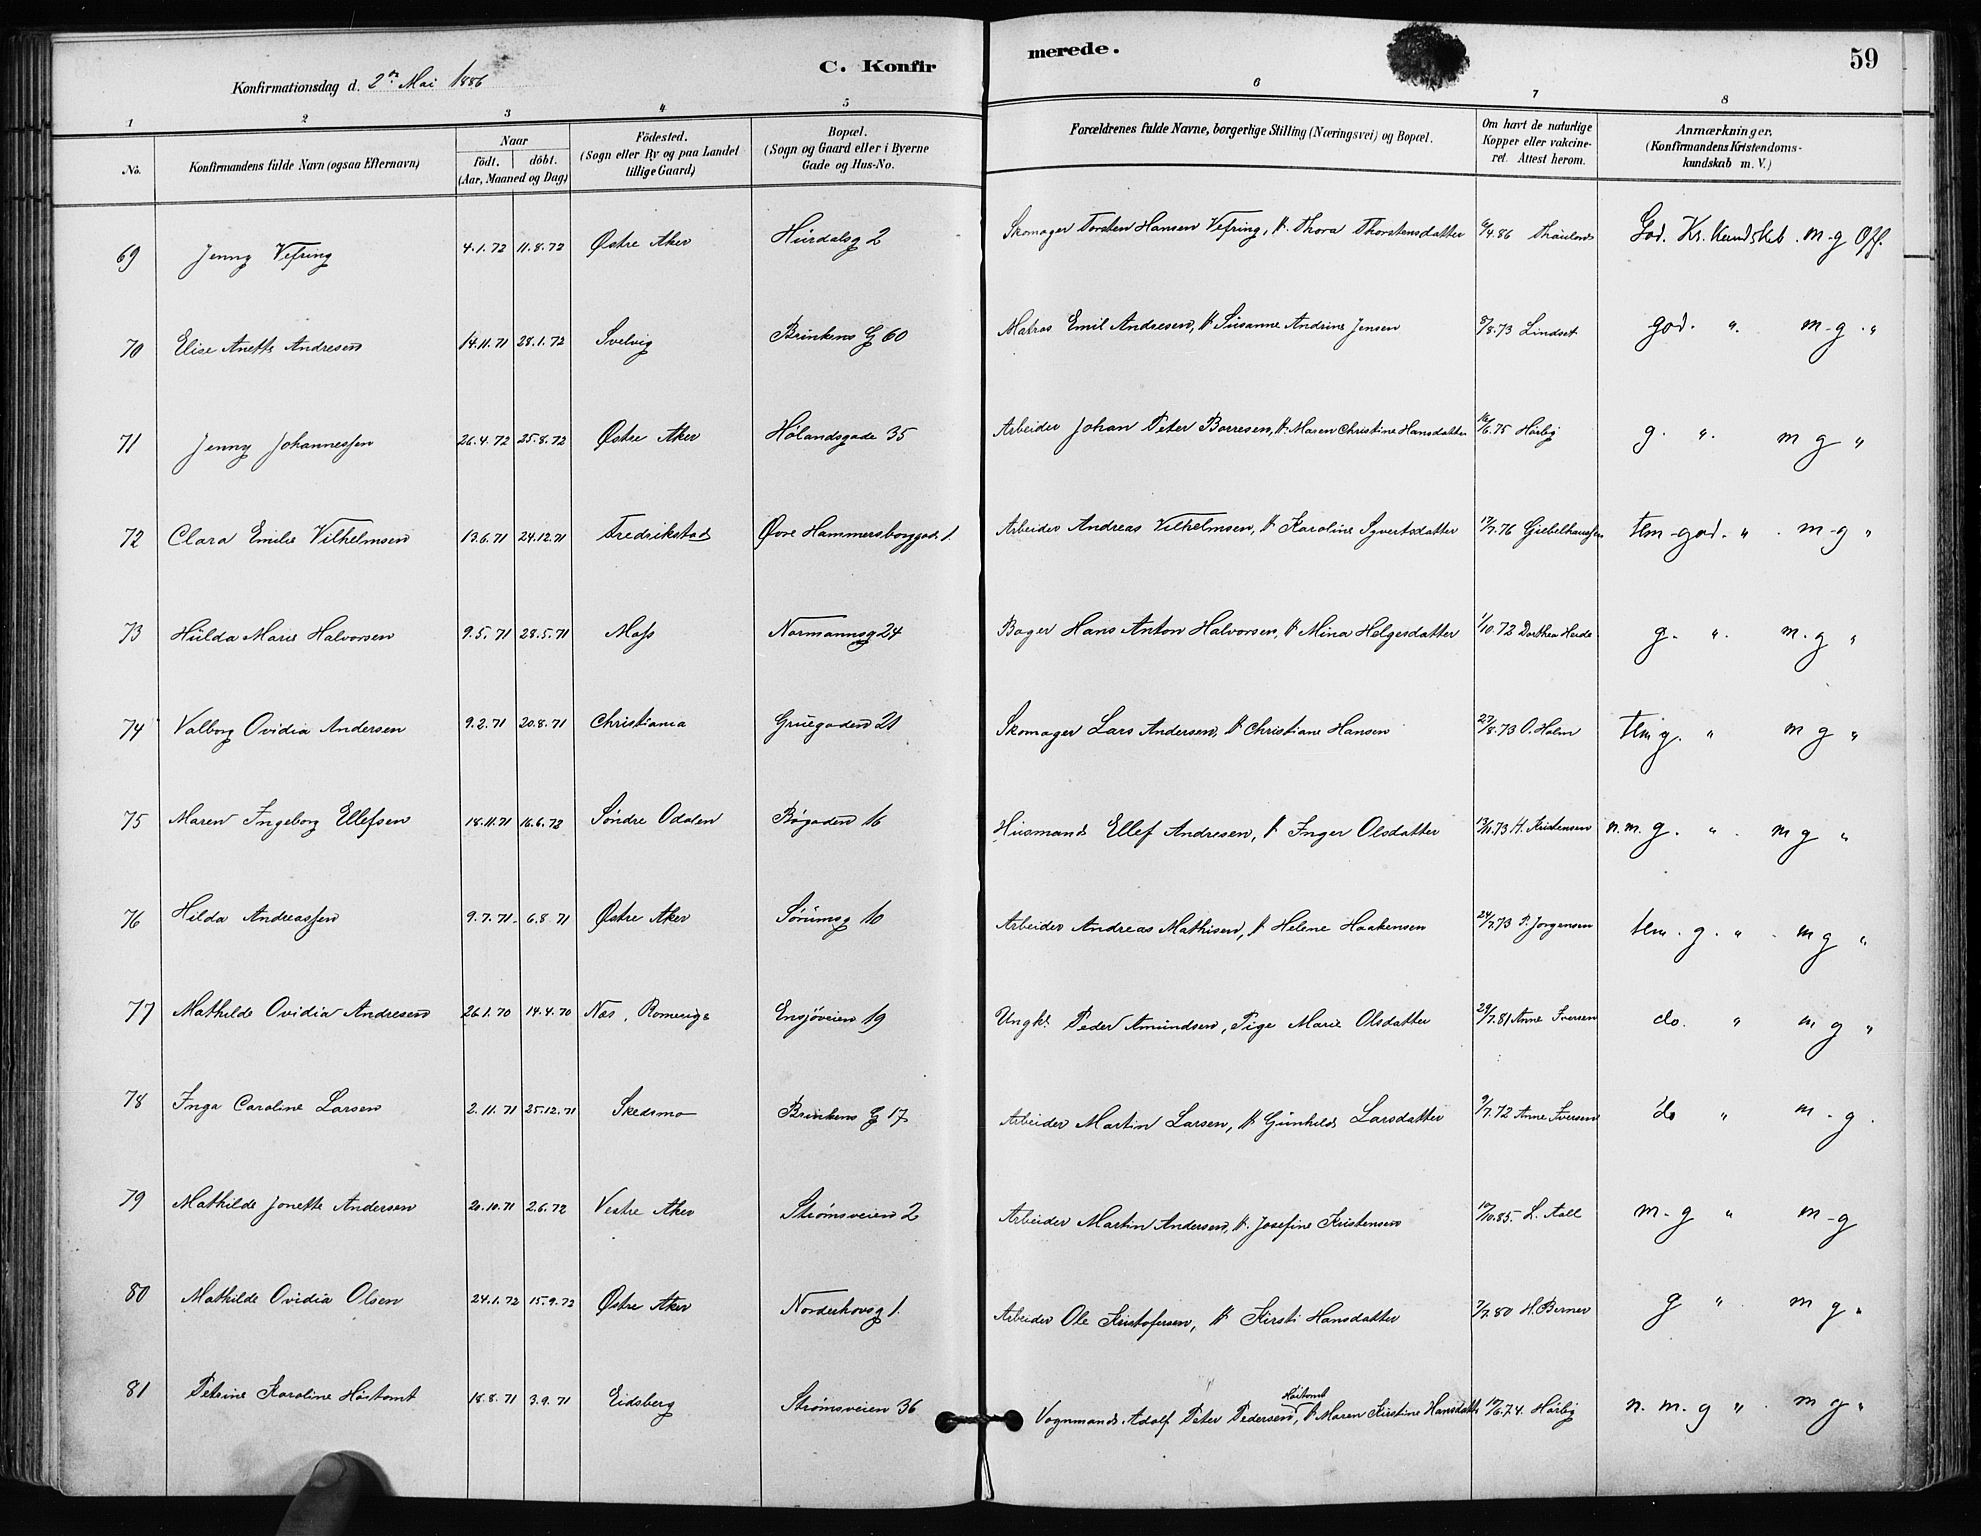 C. Konfirmerede. 59
Konfirmationsdag d. 2den Mai 1886
1 2 3 4 5 6 7 8
No. Konfirmandens fulde Navn (ogsaa Efternavn) Naar födt. döbt. (Aar, Maaned og Dag) Födested. (Sogn eller By og paa Landet tillige Gaard) Bopæl. (Sogn og Gaard eller i Byerne Gade og Hus-No. Forældrenes fulde Navne, borgerlige Stilling (Næringsvei) og Bopæl. Om havt de naturlige Kopper eller vakcineret. Attest herom. Anmærkninger. (Konfirmandens Kristendomskundskab m. V.)
69 Jenny Vefring 4.1.72 11.8.72 Østre Aker Hurdalsg 2 Skomager Torsten Hansen Vefring, & Thora Thorstensdatter 6/4.86 Thaulow God. Kr. kundskab. m-g Off.
70 Elise Anette Andresen 14.11.71 28.1.72 Svelvig Brinkens G 60 Matros Emil Andresen, & Susanne Andrine Jensen 8/8.73 Lindset god. " m-g. "
71 Jenny Johannessen 26.4.72 25.8.72 Østre Aker Hølandsgade 35 Arbeider Johan Peter Borresen, & Maren Christine Hansdatter 16/6.75 Hörbÿ g. " m g "
72 Clara Emilie Vilhelmsen 13.6.71 24.12.71 Fredrikstad Øvre Hammersborggade 1. Arbeider Andreas Vilhelmsen, & Karoline Syvertsdatter 17/7.76 Giebelhaussen tlm-god. " m-g "
73 Hulda Marie Halvorsen 9.5.71 28.5.71 Moss Normannsg 24 Bager Hans Anton Halvorsen, & Mina Helgesdatter 1/10.72 Dorthea Heide g. " m. g "
74 Valborg Ovidia Andersen 9.2.71 20.8.71 Christiania Gruegaden 21 Skomager Lars Andersen, & Christiane Hansen 27/8.73 O. Holm tlm g. " m g "
75 Maren Ingeborg Ellefsen 18.11.71 16.6.72 Søndre Odalen Bøgaden 16 Husmand Ellef Andresen, & Inger Olsdatter 13/11.73 H. Kristensen n. m. g. " m g "
76 Hilda Andreassen 9.7.71. 6.8.71 Østre Aker Sørumsg 10 Arbeider Andreas Mathisen, & Helene Haakensen 24/7.73 P. Jorgensen tlm. g. " m g "
77 Mathilde Ovidia Andresen 26.1.70 14.4.70 Næs, Romerige Ensjøveien 19 Ungk. Peder Amundsen, Pige Marie Olsdatter 29/7.81 Anne Iversen do. " m g "
78 Inga Caroline Larsen 2.11.71 25.12.71 Skedsmo Brinkens G 17. Arbeider Martin Larsen, & Gunhild Larsdatter 9/7.72 Anne Iversen do " m-g.
79 Mathilde Jonette Andersen 20.10.71 2.6.72 Vestre Aker Strømsveien 2 Arbeider Martin Andersen, & Josefine Kristensen 17/10.85. L. Aall m-g " m-g
80 Mathilde Ovidia Olsen 24.1.72 15.9.72 Østre Aker Norderhovsg 1. Arbeider Ole Kristofersen, & Kirsti Hansdatter 7/7.80 H. Berner g " m g "
81 Petrine Karoline Høitomt 18.8.71 3.9.71 Eidsberg Strømsveien 36 Vognmand Adolf Peter Pedersen Høitomt, & Maren Kirstine Hansdatter 19/6.74. Hörbÿ n. m. g " m g "